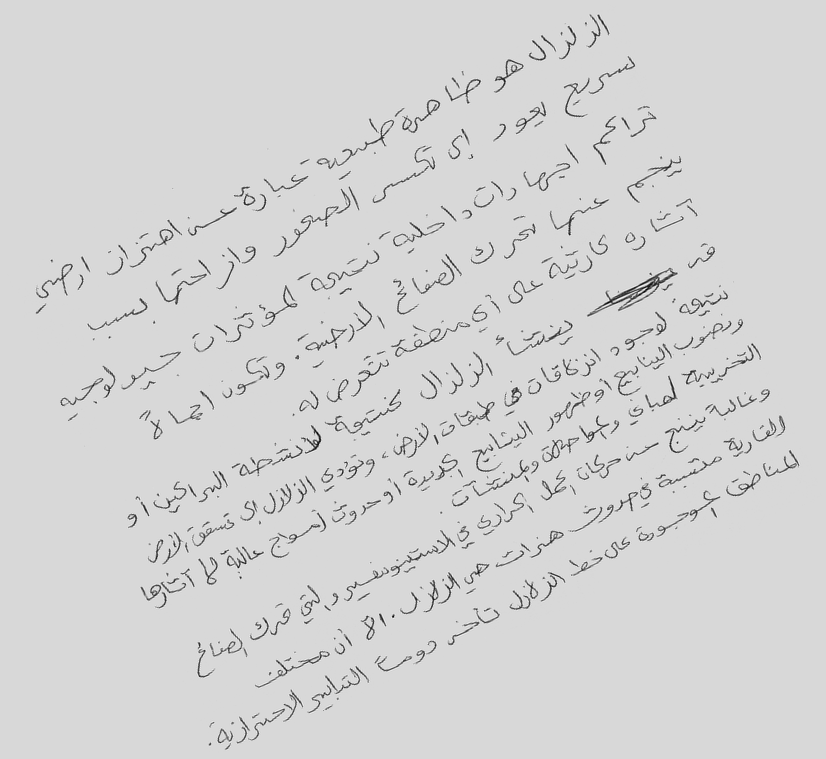 الزلزال هو ظاهرة طبيعية عبارة عن اهتزاز ارضي
سريع يعود إلى تكسر الصخور وازاحتها بسبب
تراكم اجهادات داخلية نتيجة لمؤثرات جيولوجيه
ينجم عنها تحرك الصفائح الأرضية. وتكون اجمالاً
آثاره كارثية على أي منطقة تتعرض له.
قد ينشأ الزلزال كنتيجة لأنشطة البراكين أو
نتيجة لوجود انزلاقات في طبقات الأرض، وتؤدي الزلازل إلى تشقق الأرض
ونضوب الينابيع أو ظهور الينابيع الجديدة أو حدوث أمواج عالية لها آثارها
التخريبية لمباني والمواصلات والمنشآت.
وغالبة ينتج عن حركات الحمل الحراري في الاستينوسفير والتي تحرك الصفائح
القارية متسببة في حدوث هزات هي الزلازل. الا أن مختلف
المناطق الموجودة على خط الزلازل تأخذ دوماً التدابير الاحترازية.